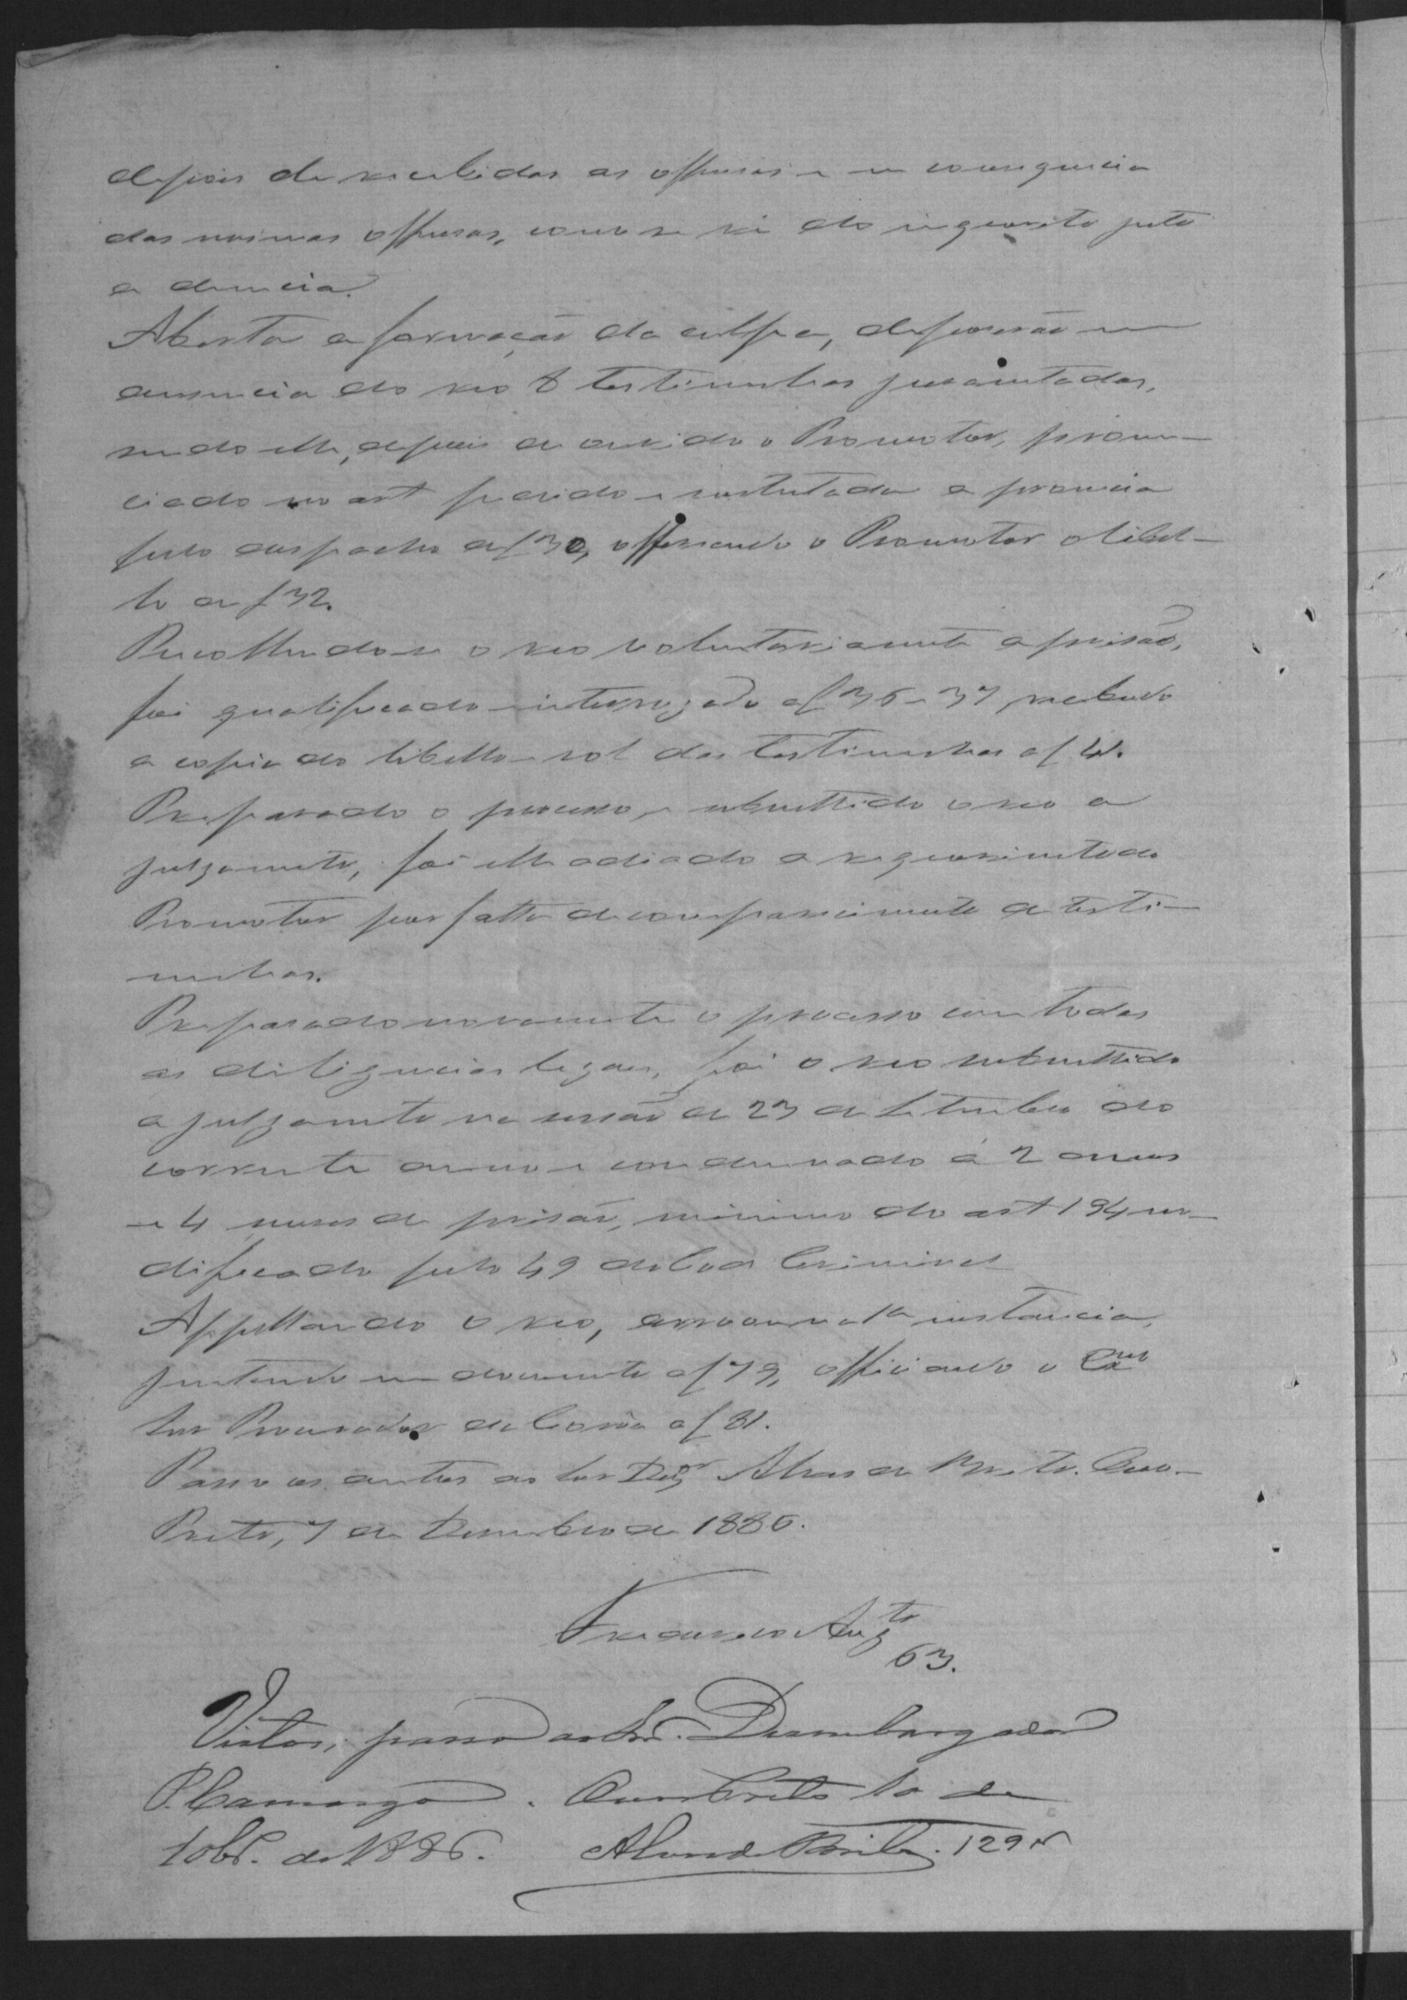 depois de recebidas as offensas e em consequencia
das mesmas offensas, como se vê do inquerito junto
a denuncia.
Aberta a formação da culpa, depuserão em
ausencia do reo 8 testimunhas juramentadas,
sendo elle, depois de ouvido o Promotor, pronun-
ciado no art pedido e sustentada a pronuncia
pelo despacho a f 30, offerecendo o Promotor o libel-
lo a f 32.
Recolhendo-se o reo voluntariamente a prisão,
foi qualificado e interrogado a f 36 e 37, recebendo
a copia do libello e rol das testimunhas a f 41.
Preparado o processo, e submettido o reo a
julgamento, foi elle adiado a requerimento do
Promotor por falta de comparecimento de testi-
munhas.
Preparado novamente o processo com todas
as diligencias legaes, foi o reo submettido
a julgamento na sessão de 23 de Setembro do
corrente anno e condemnado á 2 annos
e 4 meses de prisão, minimo do art 194 mo-
dificado pelo 49 do Cod Criminal
Appellando o reo, arrazoou na 1ª instancia,
juntando um documento a f 79, officiando o Exmo
Snr Procurador da Corôa a f 81.
Passo os autos ao Snr Dezor Alves de Brito. Ouro-
Preto, 7 de Dezembro de 1886.
Frederico Augto
63.
Vistos, passo ao Sr. Desembargador
P. Camargo. Ouro Preto 10 de
10br. de 1886. Alves de Brito. 129 r